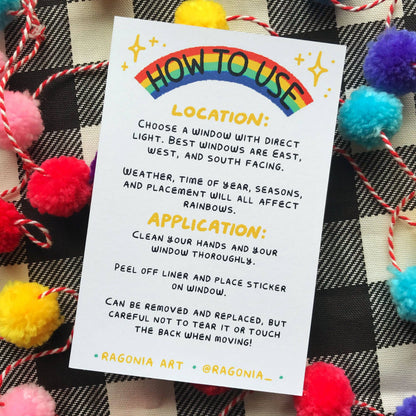 HOW TO USE
LOCATION:
CHOOSE A WINDOW WITH DIRECT
LIGHT. BEST WINDOWS ARE EAST,
WEST, AND SOUTH FACING.
WEATHER, TIME OF YEAR, SEASONS,
AND PLACEMENT WILL ALL AFFECT
RAINBOWS.
APPLICATION:
CLEAN YOUR HANDS AND YOUR
WINDOW THOROUGHLY.
PEEL OFF LINER AND PLACE STICKER
ON WINDOW.
CAN BE REMOVED AND REPLACED, BUT
CAREFUL NOT TO TEAR IT OR TOUCH
THE BACK WHEN MOVING!
• RAGONIA ART • @RAGONIA_ •